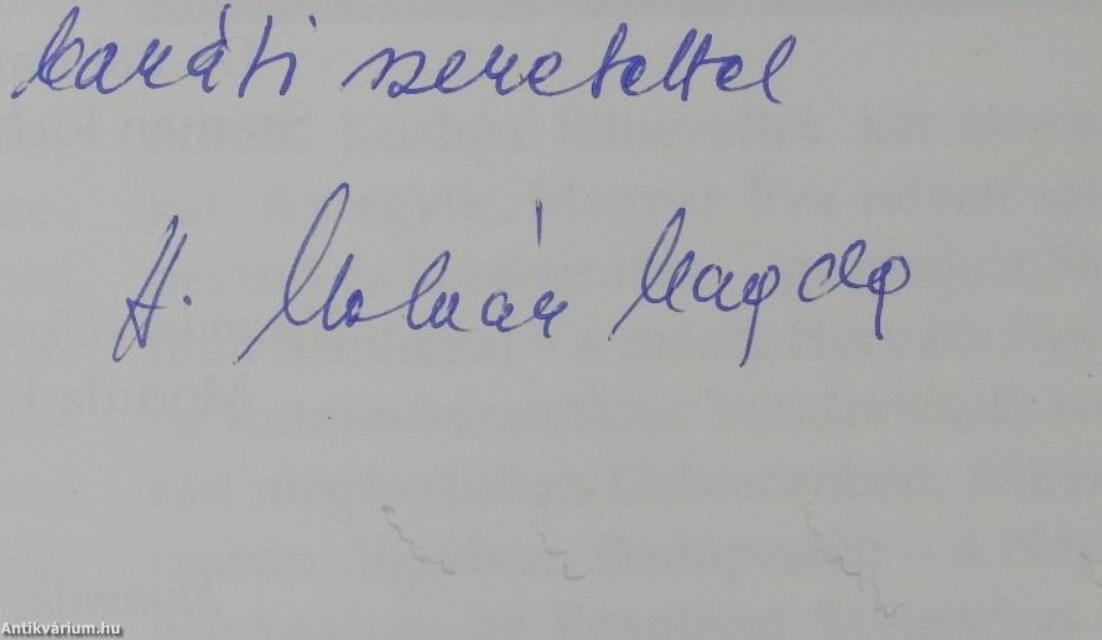 baráti szeretettel
H. Molnár Magda
Antikvárium.hu